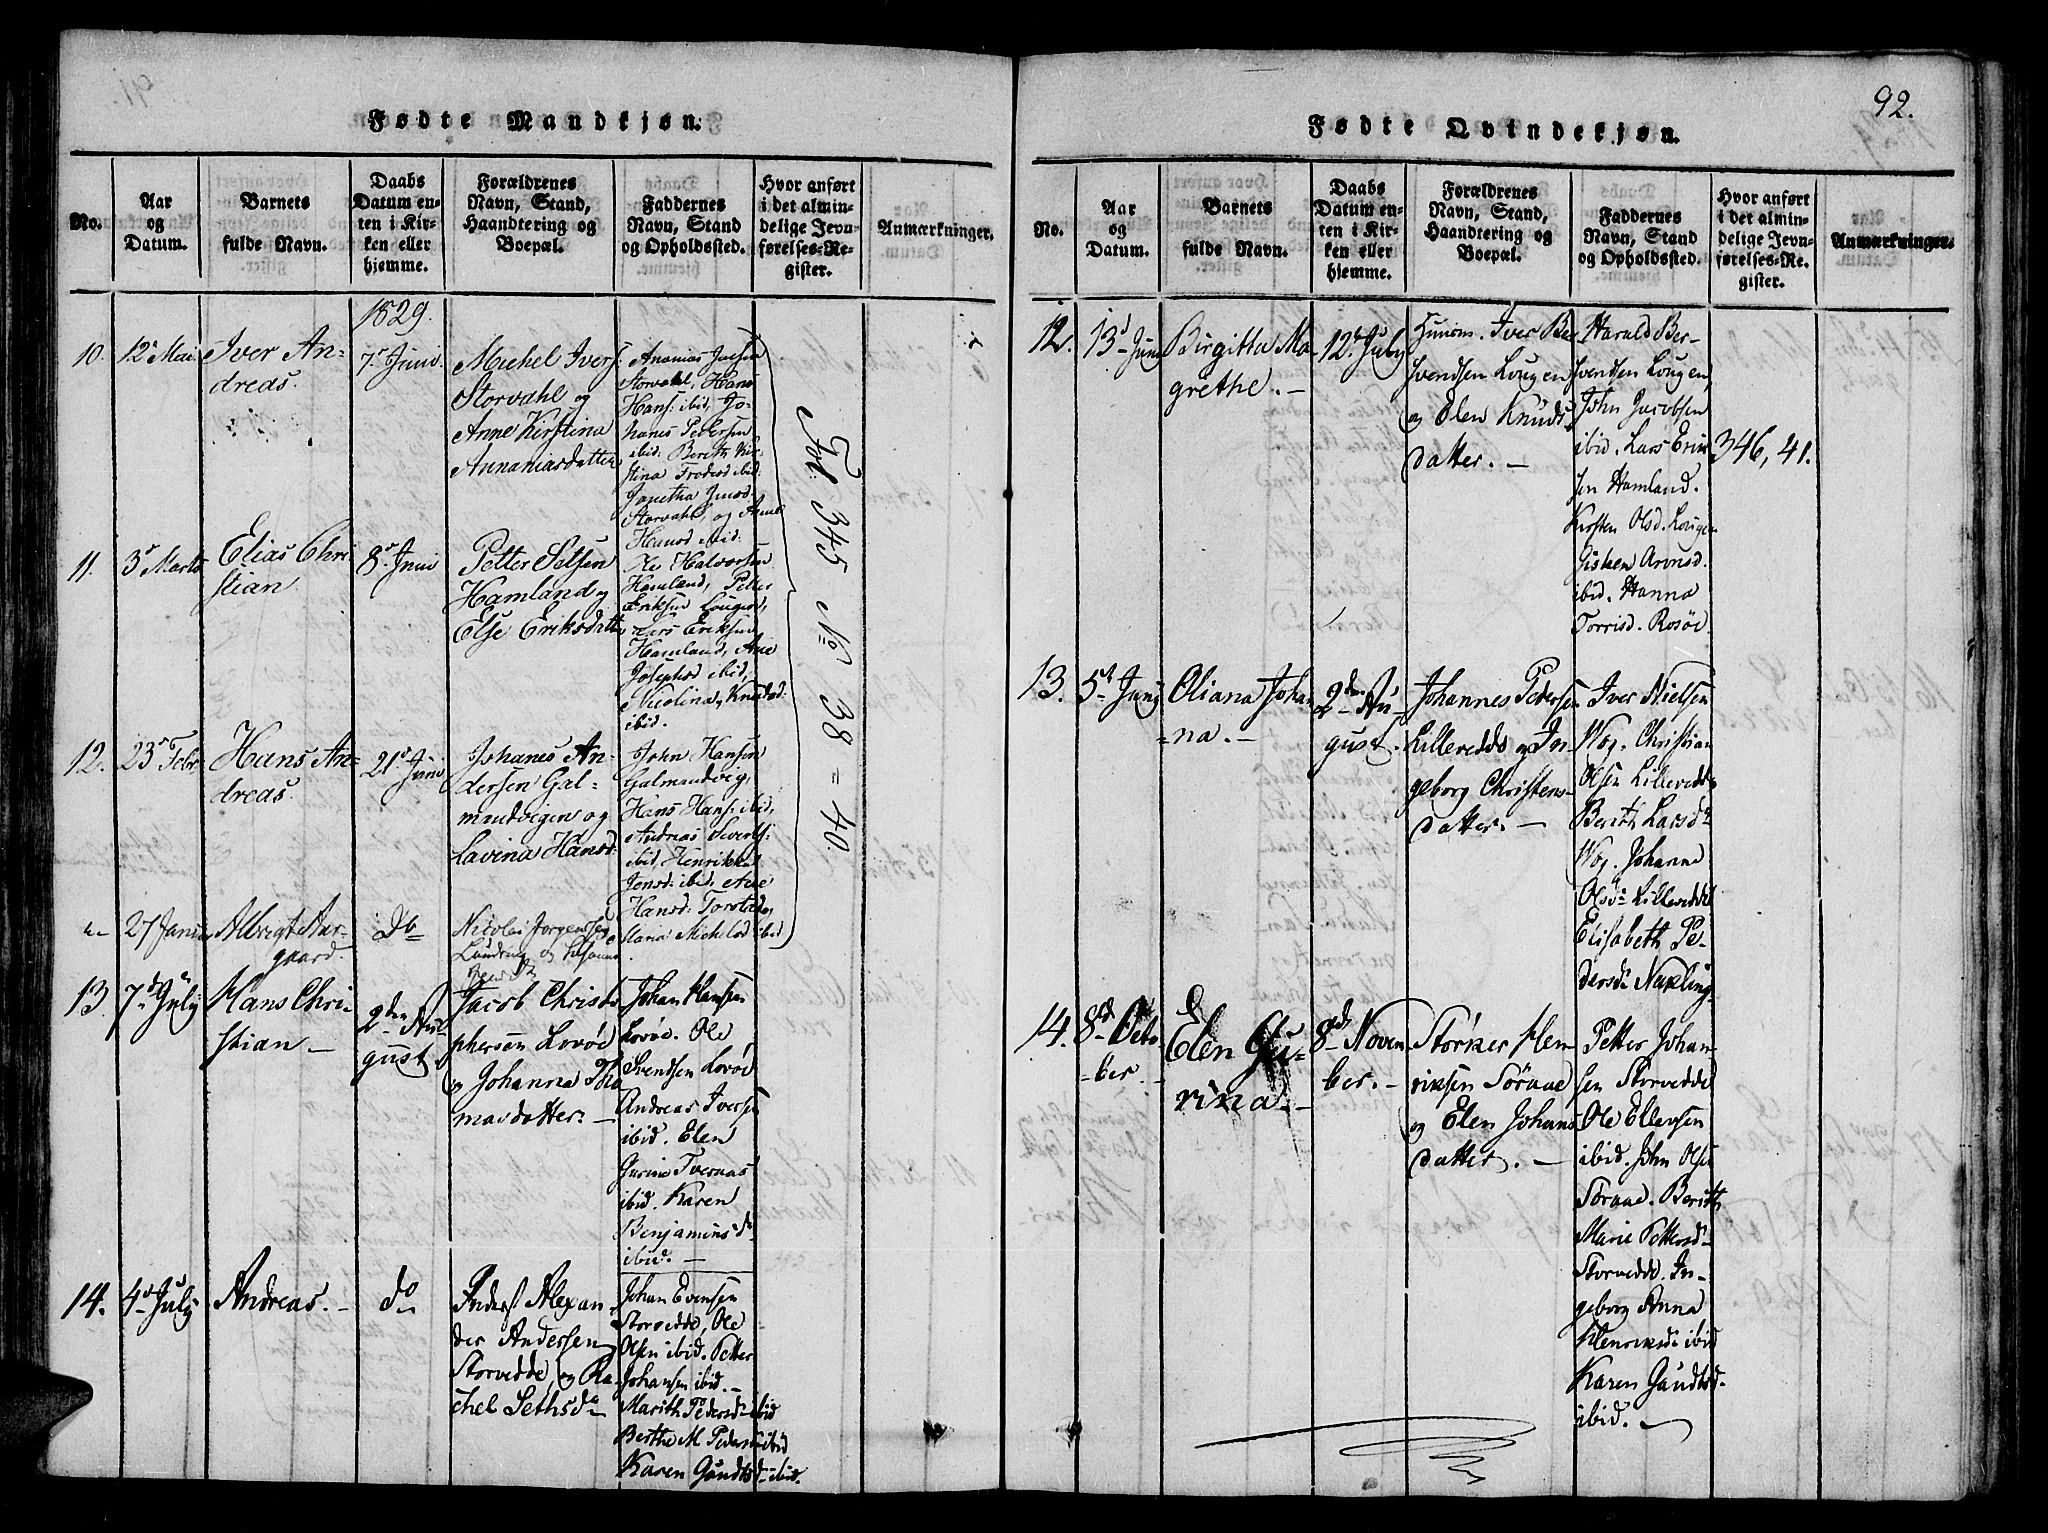 92.
Fødte Mandkjøn.
No.
Aar
og
Datum.
Barnets
fulde Navn.
Daabs
Datum en-
ten i Kir-
ken eller
hjemme.
Forældrenes
Navn, Stand,
Haandtering og
Boepæl.
Faddernes
Navn, Stand
og Opholdssted.
Hvor anført
i det almin-
delige Jevn-
førelses-Re-
gister.
Anmærkninger.
1829.
10.
12. Mai
Iver An-
dreas.
7. Juni
Michel Ivers:
Storvahl og
Anne Kirstina
Annaniasdatter
Ananias
Storvahl, Hans
Hans: ibid, Jo-
hanes Pedersen
ibid: Berith Kir-
stina
ibid:
Storvahl, og Anne
Hansd ibid:
Fol: 345 No 38 = 40
11.
3. Marts
Elias Chri
stian
8. Juni
Petter Setsen
Hamland og
Else Eriksdatter
Halvorsen
Hamland, Petter
Eriksen Lougen,
Lars Eriksen
Hamland, Ane
Josephsd ibid,
Nicolina Knudsd:
ibid.
12.
23. Febr
Hans An-
dreas.
21. Juni
Johanes An-
dersen Gal-
mandvigen og
Lavina Hansd:
John Hansen
Galmandvig,
Hans Hans: ibid,
Andreas Sivers:
ibid, Henrikka
Jensd: ibid, Ane
Hansd: Torstad
Maria Michelsd ibid
27 Januar
Albrigt Aar-
gaard.
Do
Nicolai Jørgensen
og
13.
7d July
Hans Chri-
stian
2den Au-
gust
Jacob Christo-
phersen Lovöe
og Johanna Tho
masdatter.
Johan Hansen
Lovöe. Ole
Svendsen Lovöe
Andreas Iversen
ibid. Elen
Gurina Tvernas
ibid. Karen
Benjaminsd
ibid.
14.
4d July
Andreas.
do
Anders Alexan
der Andersen
Storvedde, og Ra-
chel Sethsd
Johan Evensen
Storvedde, Ole
Olsen ibid. Petter
Johansen ibid.
Marith Pedersd ibid
Berthe M Peders ibid
Karen Gundtsd ibid.
Fødte Qvindekjøn.
No.
Aar
og
Datum.
Barnets
fulde Navn.
Daabs
Datum en-
ten i Kir-
ken eller
hjemme.
Forældrenes
Navn, Stand,
Haandtering og
Boepæl.
Faddernes
Navn, Stand
og Opholdssted.
Hvor anført
i det almin-
delige Jevn-
førelses-Re-
gister.
Anmærkninger.
12.
13d Juny
Birgitta Ma-
grethe.
12. July
Huusm. Iver Ber
ivendsen Lougen
og Elen Knuds
datter.
Harald Ber-
ivendsen Lougen,
John Jacobsen
ibid. Lars Erik
sen Hamland.
Kirsten Olsd. Lougen
Gisken Arnesd.
ibid. Hanna
Torrisd. Rosöe
346, 41.
13.
5d Juny
Oliana Johan
na.
2den Au-
gust.
Johannes Pedersen
Lillevedde og In-
geborg Christens-
datter.
Iver Nielsen
Wog. Christian
Olsen Lillevedde
Berith Larsd
Wog. Johanna
Olsd Lillevedde
Elisabeth Pe-
dersd Nakling
14.
8d Octo-
ber.
Elen Gu-
rina.
8d Novem-
ber.
Störker Hen-
riksen Söraae
og Elen Johans
datter.
Petter Johan-
sen Storvedde
Ole Ellevsen
ibid. John Olsen
Söraae. Berith
Marie Pettersd
Storvedde. In-
geborg Anna
Henriksd: ibid
Karen Gundtsd.
ibid.